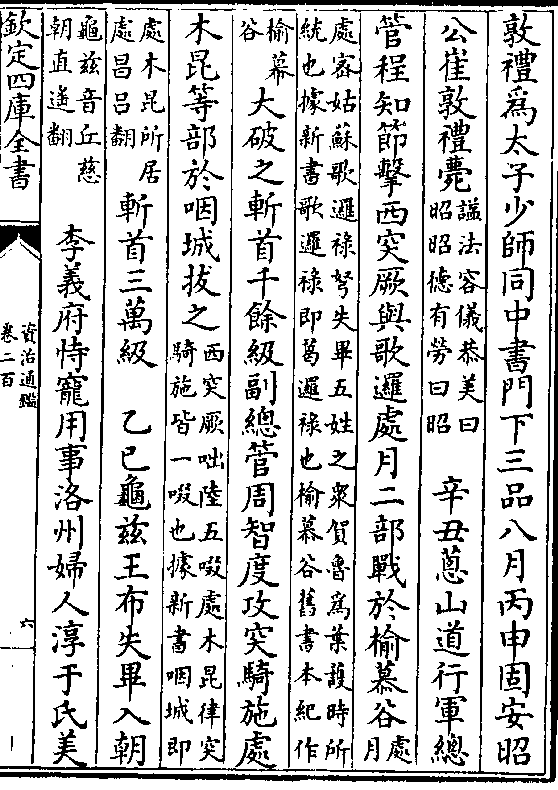 敦禮爲太子少師同中書門下三品八月丙申固安昭
公崔敦禮薨諡法容儀恭美曰昭昭德有勞曰昭 辛丑蔥山道行軍總
管程知節擊西突厥與歌邏處月二部戰於榆慕谷處月
處密姑蘇歌邏祿弩失畢五姓之衆賀魯爲葉護時所統也據新書歌邏祿即葛邏祿也榆慕谷舊書本紀作
榆幕谷大破之斬首千餘級副總管周智度攻突騎施處
木昆等部於咽城拔之西突厥咄陸五啜處木昆律突騎施皆一啜也據新書咽城即
處木昆所居處昌呂翻斬首三萬級 乙巳龜茲王布失畢入朝
龜茲音丘慈朝直遙翻 李義府恃寵用事洛州婦人淳于氏美
欽定四庫全書
資治通鑑
卷二百
六